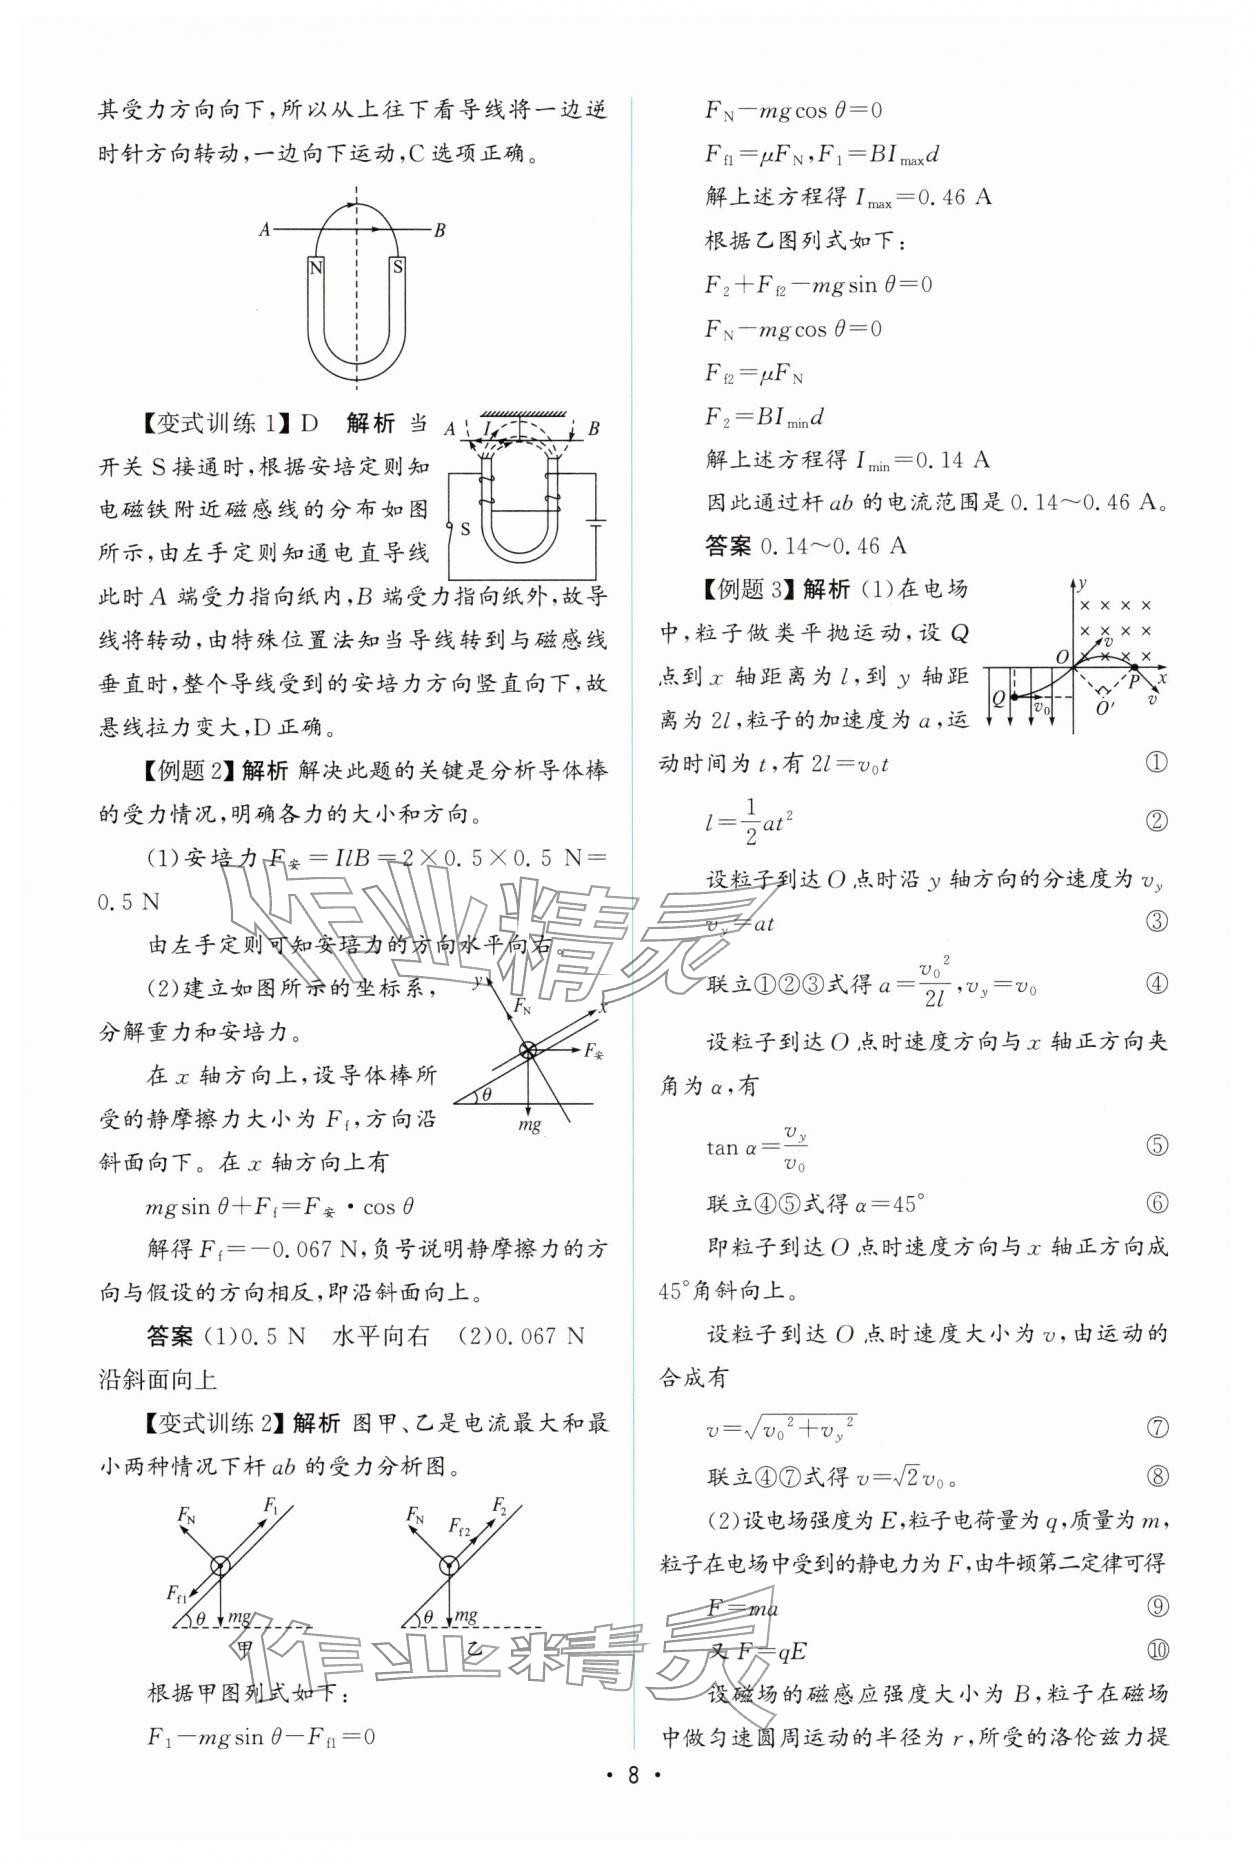 其受力方向向下,所以从上往下看导线将一边逆
时针方向转动,一边向下运动,C选项正确。
A
B
N
S
【变式训练1】D 解析 当
开关S接通时,根据安培定则知
电磁铁附近磁感线的分布如图
所示,由左手定则知通电直导线
A
I
B
S
此时A端受力指向纸内,B端受力指向纸外,故导
线将转动,由特殊位置法知当导线转到与磁感线
垂直时,整个导线受到的安培力方向竖直向下,故
悬线拉力变大,D正确。
【例题2】解析 解决此题的关键是分析导体棒
的受力情况,明确各力的大小和方向。
(1)安培力F安=IlB=2×0.5×0.5 N=
0.5 N
由左手定则可知安培力的方向水平向右。
(2)建立如图所示的坐标系,
分解重力和安培力。
在x轴方向上,设导体棒所
受的静摩擦力大小为Ff,方向沿
斜面向下。在x轴方向上有
y
FN
x
F安
θ
mg
mgsin θ+Ff=F安·cos θ
解得Ff=-0.067 N,负号说明静摩擦力的方
向与假设的方向相反,即沿斜面向上。
答案 (1)0.5 N 水平向右 (2)0.067 N
沿斜面向上
【变式训练2】解析 图甲、乙是电流最大和最
小两种情况下杆ab的受力分析图。
FN
F1
Ff1
θ
mg
甲
FN
Ff2
F2
θ
mg
乙
根据甲图列式如下:
F1-mgsin θ-Ff1=0
FN-mgcos θ=0
Ff1=μFN,F1=BImaxd
解上述方程得Imax=0.46 A
根据乙图列式如下:
F2+Ff2-mgsin θ=0
FN-mgcos θ=0
Ff2=μFN
F2=BImind
解上述方程得Imin=0.14 A
因此通过杆ab的电流范围是0.14~0.46 A。
答案 0.14~0.46 A
【例题3】解析 (1)在电场
中,粒子做类平抛运动,设Q
点到x轴距离为l,到y轴距
离为2l,粒子的加速度为a,运
动时间为t,有2l=v0t ①
y
v
O
P
x
Q
v0
O′
v
l=1/2at² ②
设粒子到达O点时沿y轴方向的分速度为vy
vy=at ③
联立①②③式得a=v0²/2l,vy=v0 ④
设粒子到达O点时速度方向与x轴正方向夹
角为α,有
tan α=vy/v0 ⑤
联立④⑤式得α=45° ⑥
即粒子到达O点时速度方向与x轴正方向成
45°角斜向上。
设粒子到达O点时速度大小为v,由运动的
合成有
v=√(v0²+vy²) ⑦
联立④⑦式得v=√2v0。 ⑧
(2)设电场强度为E,粒子电荷量为q,质量为m,
粒子在电场中受到的静电力为F,由牛顿第二定律可得
F=ma ⑨
又F=qE ⑩
设磁场的磁感应强度大小为B,粒子在磁场
中做匀速圆周运动的半径为r,所受的洛伦兹力提
· 8 ·
作业精灵
作业精灵